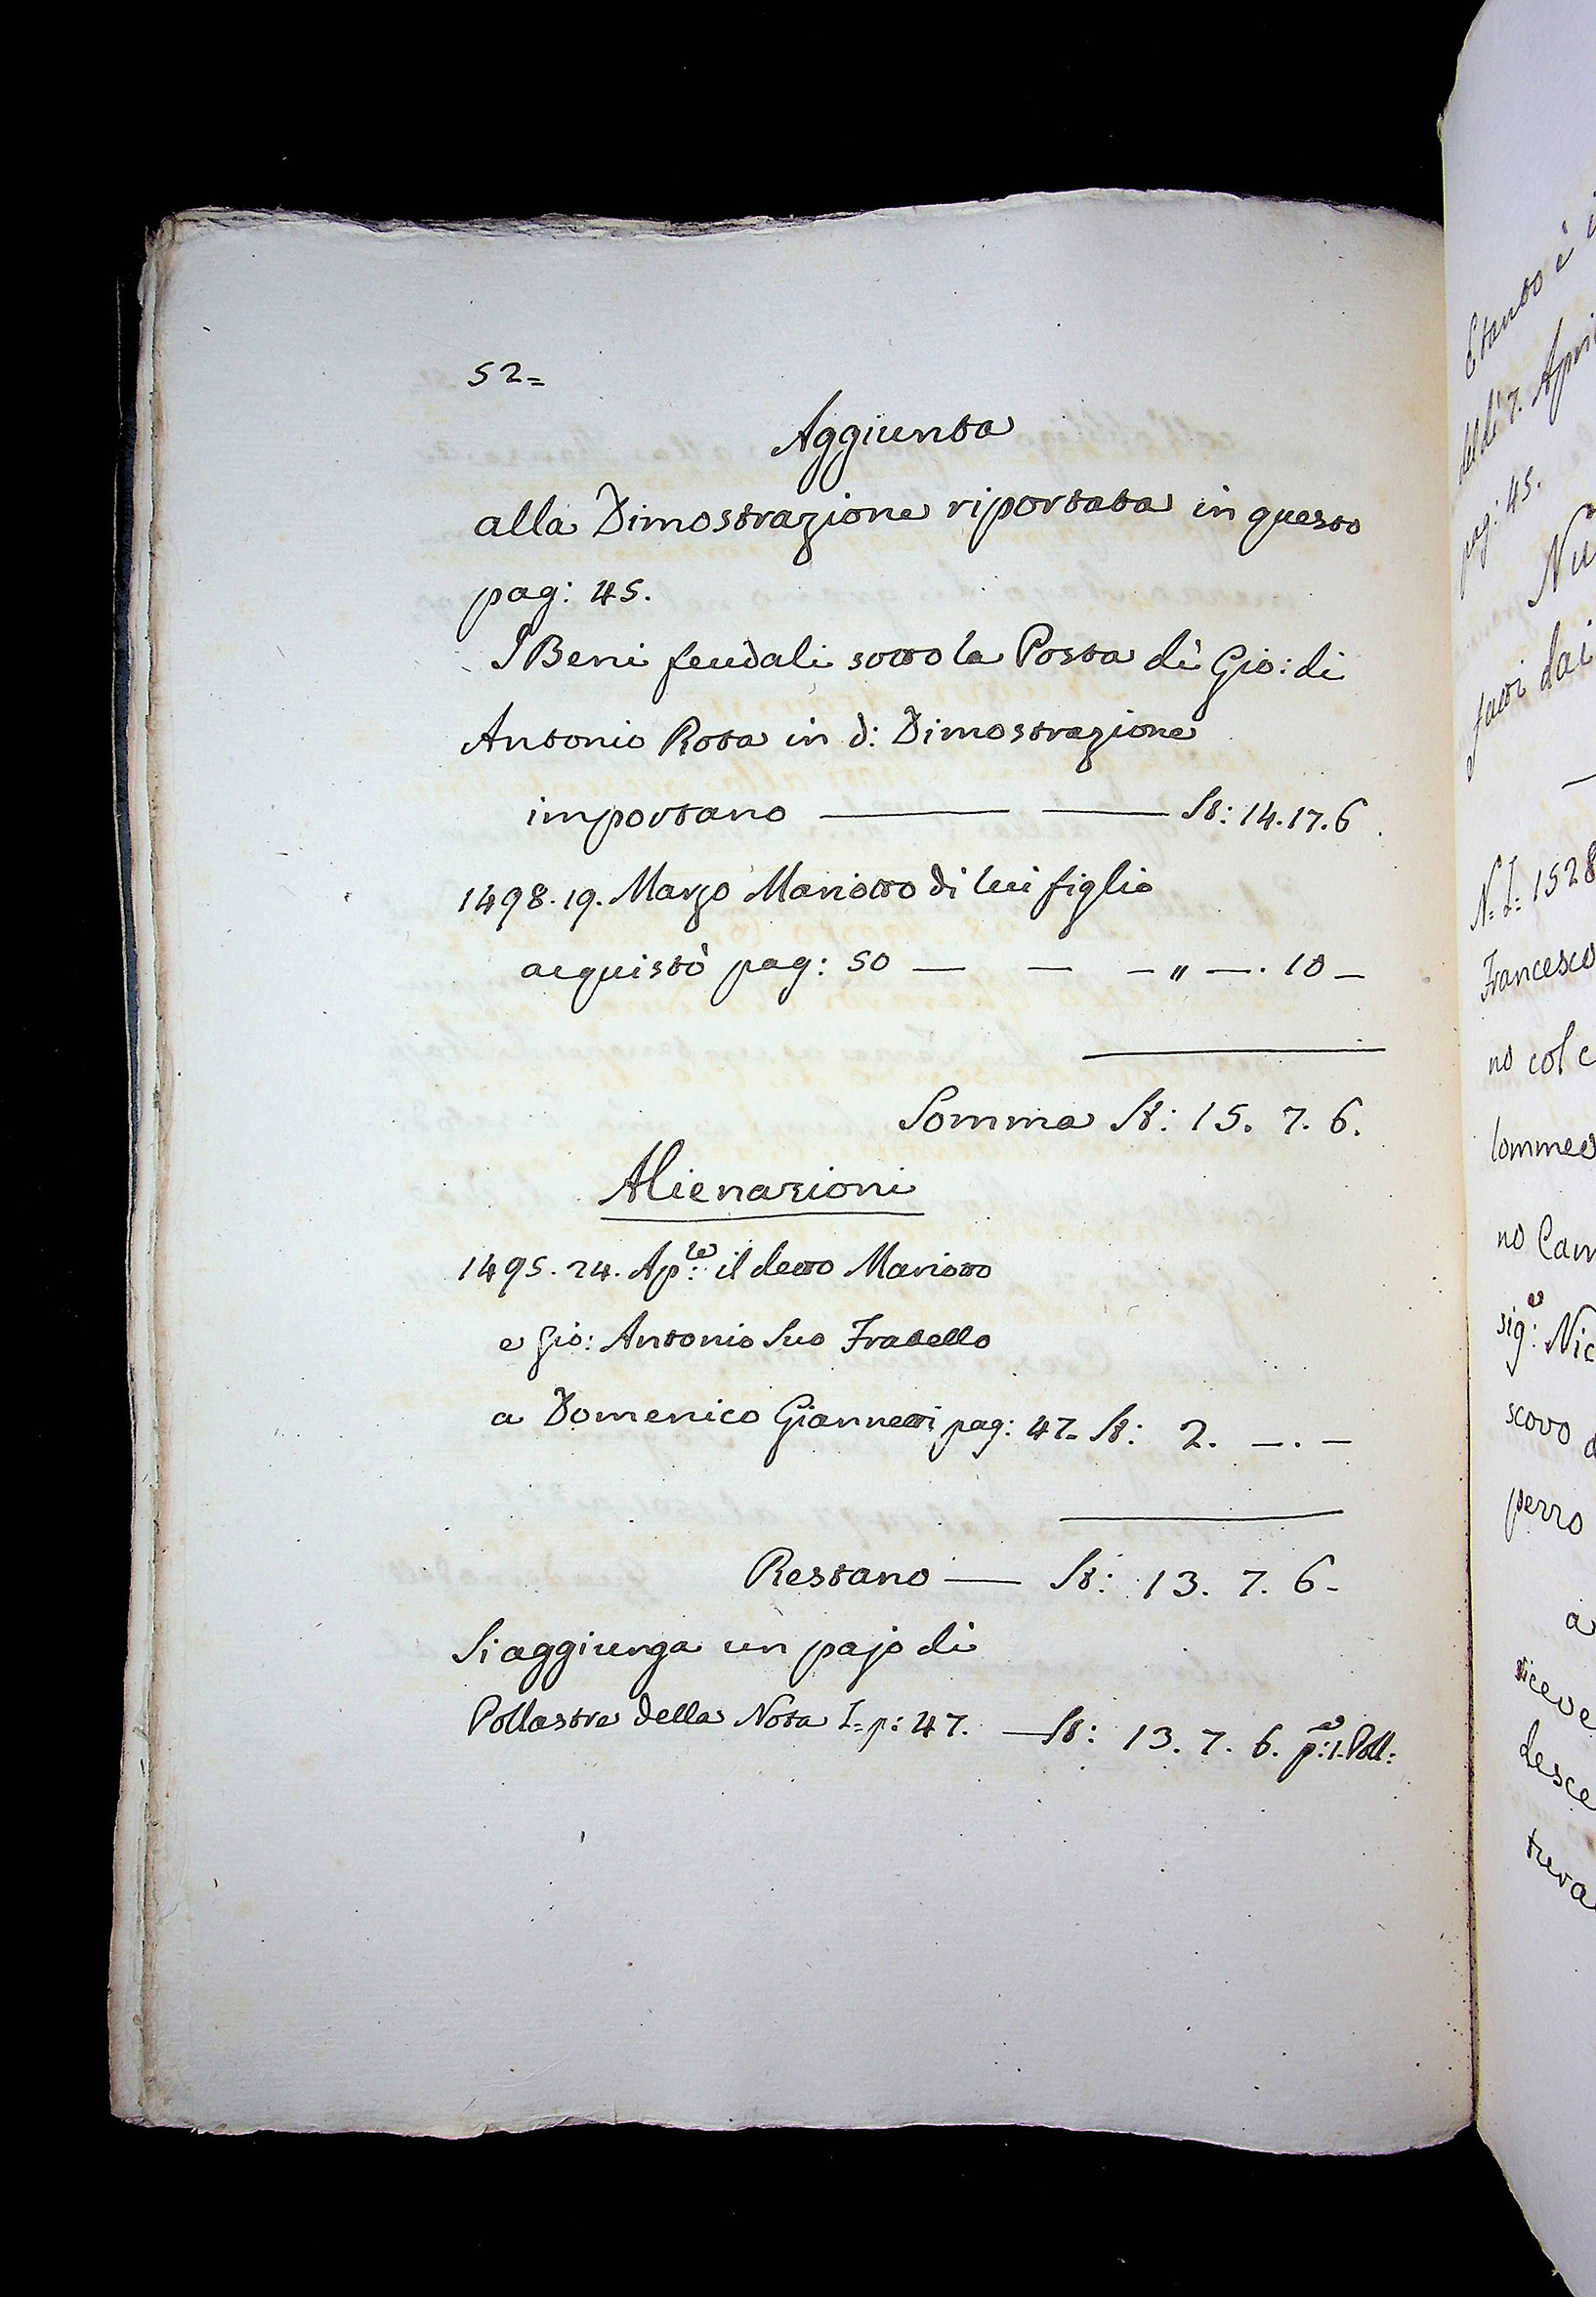 52=
Aggiunta
alla Dimostrazione riportata in questo
pag: 45.
I Beni feudali sotto la Posta di Gio: di
Antonio Rota in d: Dimostrazione
importano — — St: 14.17.6
1498.19. Marzo Mariotto di lui figlio
acquistò pag: 50 — — — " —. 10 —
Somma St: 15. 7. 6.
Alienazioni
1495. 24. Ap:le il detto Mariotto
e Gio: Antonio Suo Fratello
a Domenico Giannetti pag: 47= St: 2. —. —
Restano — St: 13. 7. 6-
Si aggiunga un pajo di
Pollastre della Nota I= p: 47. — St: 13. 7. 6. p:1. Poll:
Etanto è
del dì 7. Apri
pag: 45.
Nu
fatti dai
N= I= 1528
Francesco
no col c
no
sig:e Nic
scovo
perro
a
riceve
desce